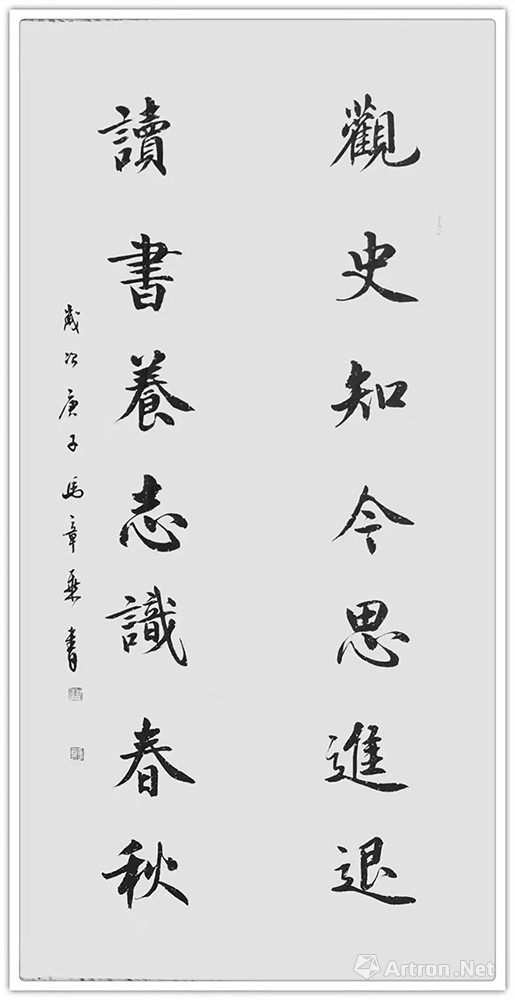 觀史知今思進退
讀書養志識春秋
歲次庚子馬章乘書
Artron.Net